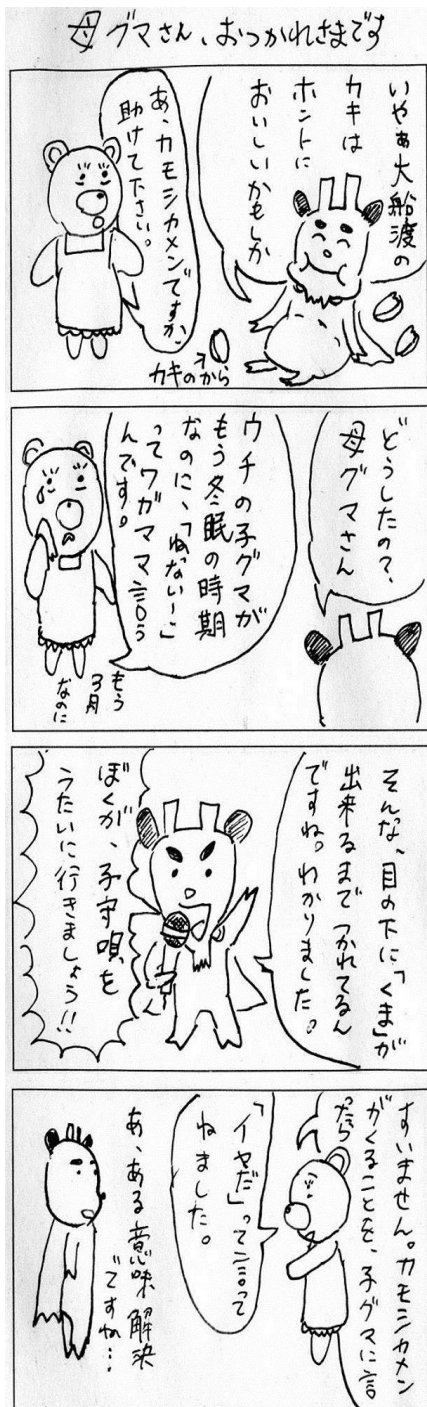 母グマさん、おつかれさまです
いやぁ大船渡の
カキは
ホントに
おいしいかもしか
あ、カモシカメンですか、
助けて下さい。
カキのから
どうしたの?、
母グマさん
ウチの子グマが
もう冬眠の時期
なのに、「ねない〜」
ってワガママ言う
んです。
もう
3月
なのに
そんな、目の下に「くま」が
出来るまでつかれてるん
ですね。わかりました。
ぼくが、子守唄を
うたいに行きましょう!!
すいません。カモシカメン
がくることを、子グマに言
ったら
「イヤだ」って言って
ねました。
あ、ある意味解決
ですね…